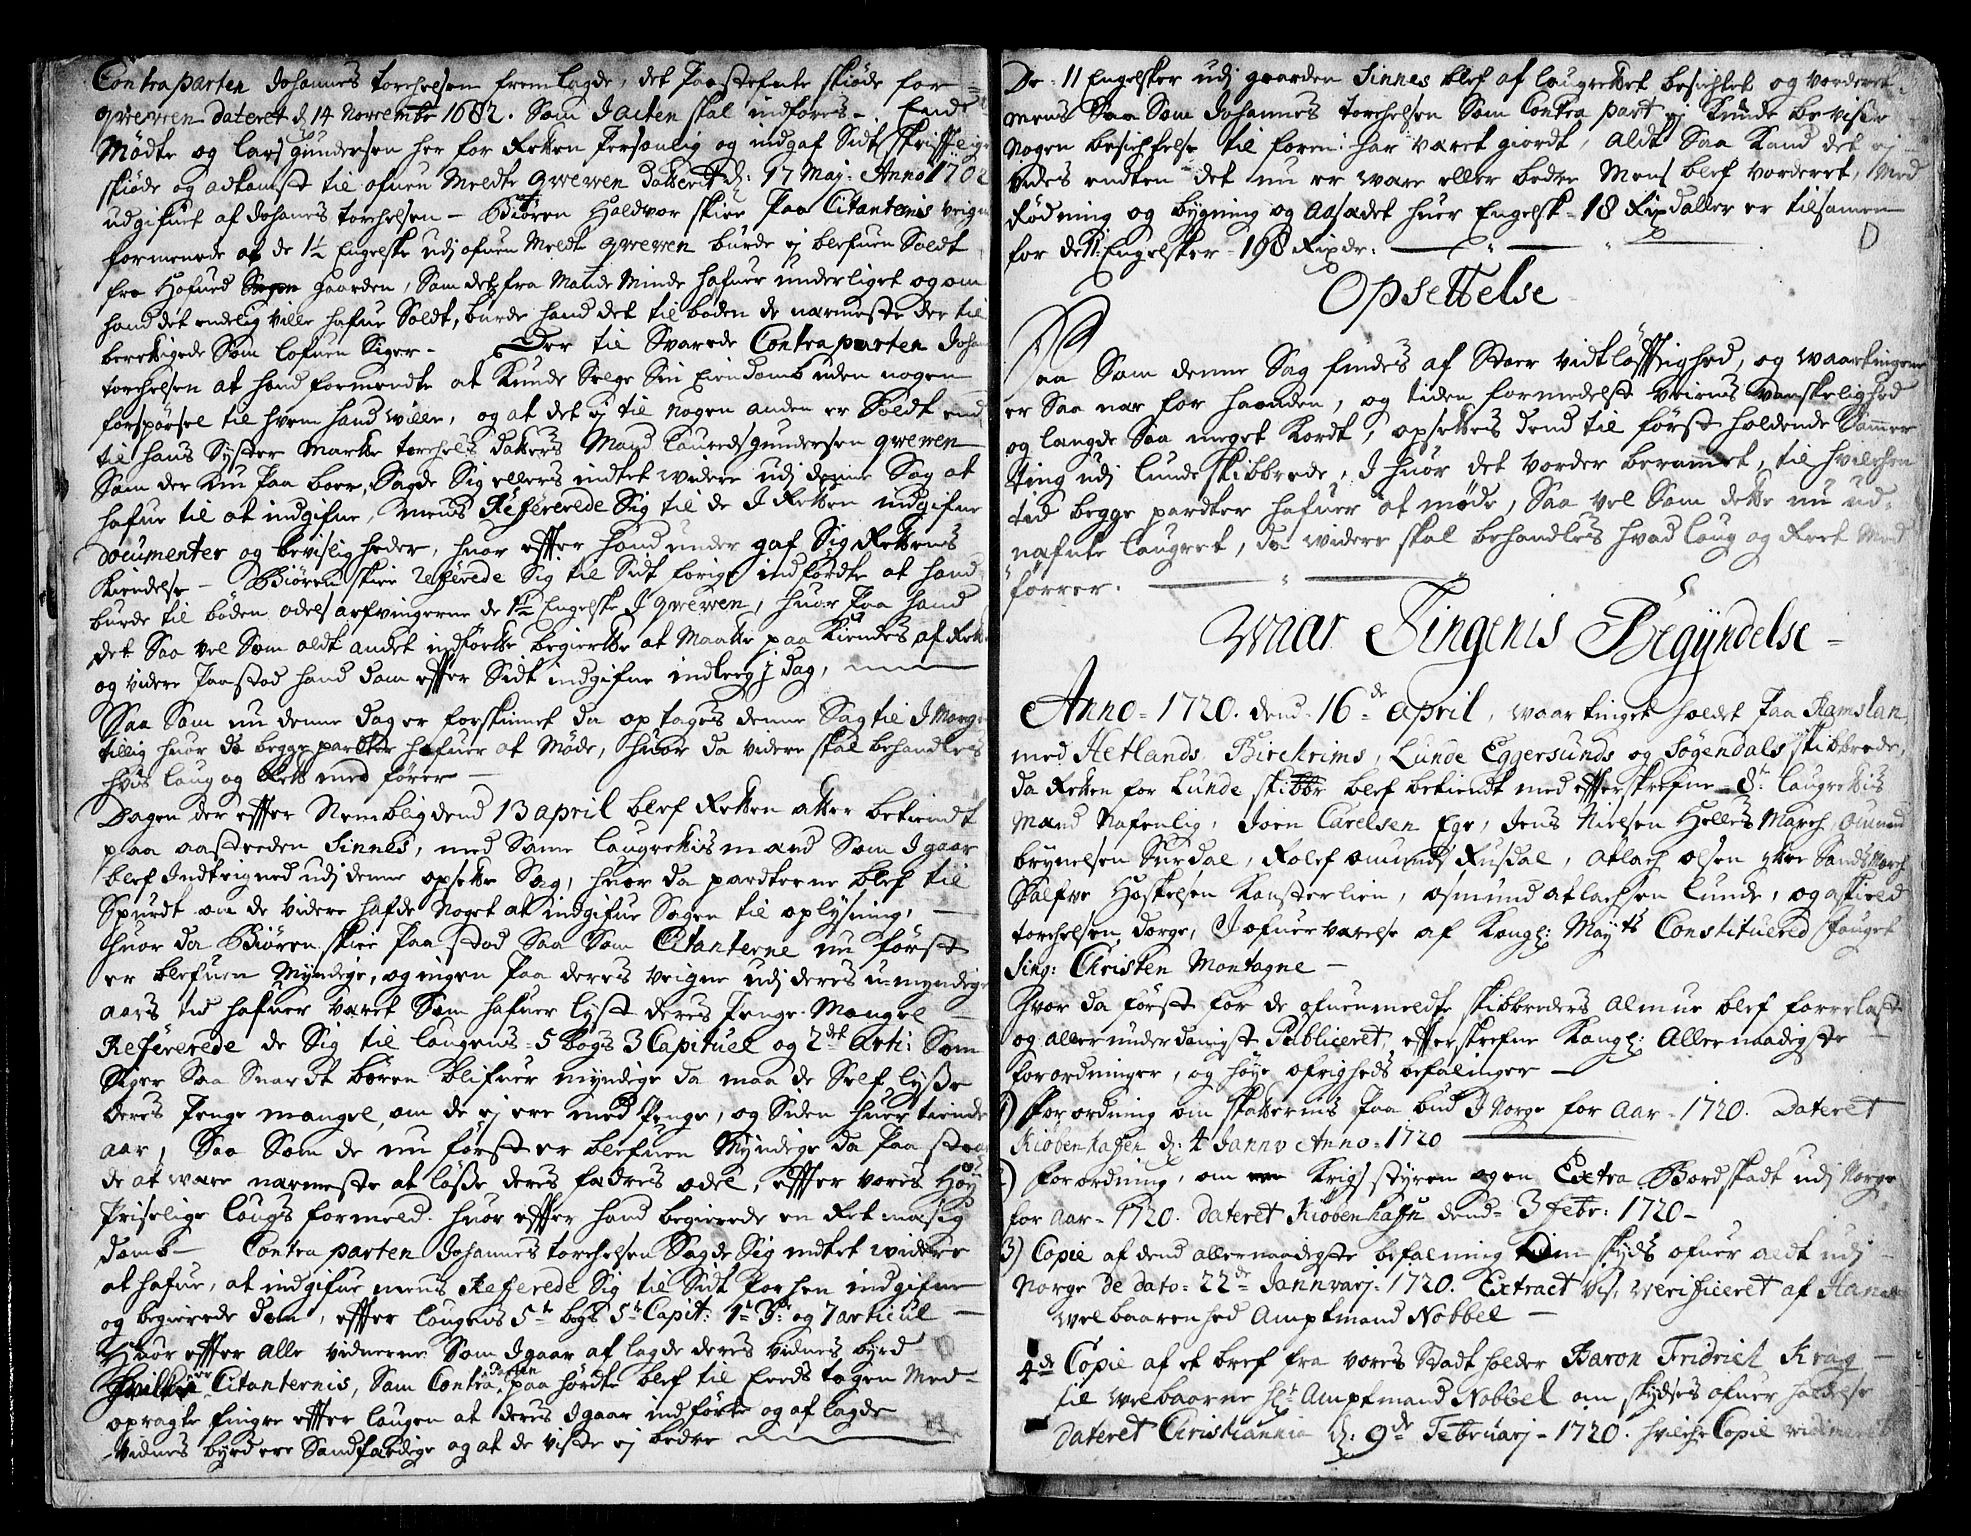 Contraparten Johannes torchelsen fremlagde, det Paastefnte skiøde for
qvewen dateret d 14 Novembr 1682. Som J acten skal indføres -. Ende
Mødte og Lars gundersen her for Retten Personlig og indgaf Sidt skrifftlige
skiøde og adkomst til ofuen Meldte qvewen datteret d: 17 Maj: Anno 1702
udgifuet af Johanes torchelsen - Biøren Haldvor skier Paa Citantenis veigne
formenede at de 1½ Engelske udj ofuen Meldt qvewen burde ej blefuen Soldt
fra Hofued gaarden, Som det fra Mands Minde hafuer underliget og om
hand det endelig ville hafue Soldt, burde hand det til boden de nærmeste der til
berettigede Som lofuen Siger - Der til Svarede Contraparten Johan
torchelsen at hand formendte at Kunde Selge Sin Eiendomb uden nogen
forspørsel til hvem hand wille, og at det ej til nogen anden er Soldt end
til hans Syster Marte torchels datters Mand Lauredsgundersen qwewen
Som der nu Paa boer, Sagde Sig ellers indtet widere udj denne Sag at
hafue til at indgifue, Mens Refererede Sig til de J Retten indgifne
Documenter og bevisligheder, huor effter hand under gaf Sig Rettens
Kiendelse - Biøren skier Refferede Sig til Sidt forige indførdte at hand
burde til bøden odels arfvingerne de 1½ Engelske J qwewen, huor Paa hand
det Saa vel Som aldt andet indførte begierte at Maatte paa Kiendes af Rett
og videre Paastod hand dom effter Sidt indgifne indleeg j dag,
Saa Som nu denne dag er forskinnet da optages denne Sag til J Morge
tillig huor da begge pardter hafuer at Møde, huor da videre skal behandles
hvis laug og Rett med fører -
Dagen der effter Nemblig dend 13 april blef Retten atter betiendt
paa aastæden Sinnes, med Same laugrettis mænd Som J gaar
blef Indteigned udj denne opsette Sag, huor da pardterne blef til
Spurdt om de videre hafde noget at indgifue Sagen til oplysning,
huor da Biøren skier Paa stod Saa Som Citanterne nu først
er blefuen Myndige, og ingen Paa deres veigne udj deres u-myndige
aars tid hafuer været Som hafuer lyst deres Penge-Mangel
Refererede de Sig til laugens 5 bogs 3 Capituel og 2det arti: Som
Siger Saa Snardt børen blifuer myndige da maa de Self lyse
deres Penge mangel, om de ej ere med Penge, og Siden huer tiende
aar, Saa Som de nu først er blefuen Myndige da Paa staar
de at ware nærmeste at løse deres fædres odel, effter vores Høy
Priselige laugs formeld. huor effter hand begierede en Ret mæsig
domb - Contra parten Johannes torchelsen Sagde Sig indtet widere
at hafue, at indgifue mens Refferede Sig til Sidt forhen indgifne
og begierede dom, effter laugens 5te bogs 5te Capit: 1te 3: og 7 articul
Huor effter alle vidnerne Som J gaar aflagde deres vidnes byrd
ofuer Citanternis, Sam Contra parten paa hørdte blef til Eeds tagen Med-
opragte fingre effter laugen at deres J gaar indførte og aflagde
vidnes byrd ere Sandfærdige og at de viste ej bedre
De 11 Engelsker udj gaarden Sinnes blef af laugrettet besichtet og vorderet
mens Saa Som Johannes torchelsen Som Contra part ej Kunde bevise
nogen besichtelse til foren: har været giordt, aldt Saa Kand det ej
vides endten det nu er ware eller bedre Mens blef vorderet, med
Rødning og bygning og Aasædet huer Engelsk 18 Rixdaller er tilsamen
for de 11 Engelsker 198 Rixdr:
Opsettelse
Saa Som denne Sag findes af Stoer vidtløfftighed, og waartingene
er Saa nær for haanden, og tiden formedelst veiens vanskelighed
og langde Saa meget Kordt, opsettes dend til først holdende Sommer
ting udj Lunde skibbrede, J huor det vorder beramet, til hvilchen
tid begge pardter hafuer at møde, Saa vel Som dette nu ud-
nafnte laugret, da widere skal behandles hvad laug og Ret Med
fører.
Waar Tingenis Begyndelse
Anno 1720. dend 16de april, waartinget holdt Paa Ramslan
med Hetlands, Birchrims, Lunde Eggersunds og Søgendals skibbrede,
da Retten for Lunde skibbr blef betiendt med effterskrefne 8te laugrettis
Mænd Nafnlig, Joen Carelsen Ege, Jens Nielsen Hellers March, Omund
brynelsen Surdal, Rolef omundsen Rusdal, Atlach olsen ytre Sandsmarch
Salfve Haskelsen Kansterlien, Asmund atlachsen Lunde, og askield
torchelsen Dorge, J ofuerværelse af Kongl: Mayts Constituered fouget
Sing: Christen Montagne -
Hvor da først for de ofuenmeldte skibbreders Almue blef forrelæst
og allerunderdanigst Publiceret, effterskrefne Kongl: Allernaadigste
forordninger, og høye øfrigheds befalinger -
1) forordning om skatternis Paa bud J Norge for Aar 1720. Dateret
Kiøbenhaffen d: 4 Janv Anno 1720
2) forordning, om Krigsstyren og en Extra Bordskadt udj Norge
for Aar 1720. dateret Kiøbenhaffn dend 3 febr: 1720 -
3) Copie af dend allernaadigste befalning om skyds ofuer aldt udj
Norge de dato 22de Jannvarj 1720. Extract vis, werificeret af Hans
welbaarenhed Amptmand Nobbel -
4de Copie af et bref fra vores Stadtholder Baron Fridrick Krag
til welbaarne Hr: Amptmand Nobbel om skydses ofuer holdelse
dateret Christiannia d: 9de Februarj 1720. hvilche Copie vidimeret